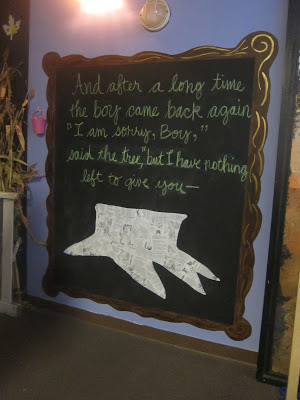 And after a long time
the boy came back again
"I am sorry, Boy,"
said the tree, "but I have nothing
left to give you—